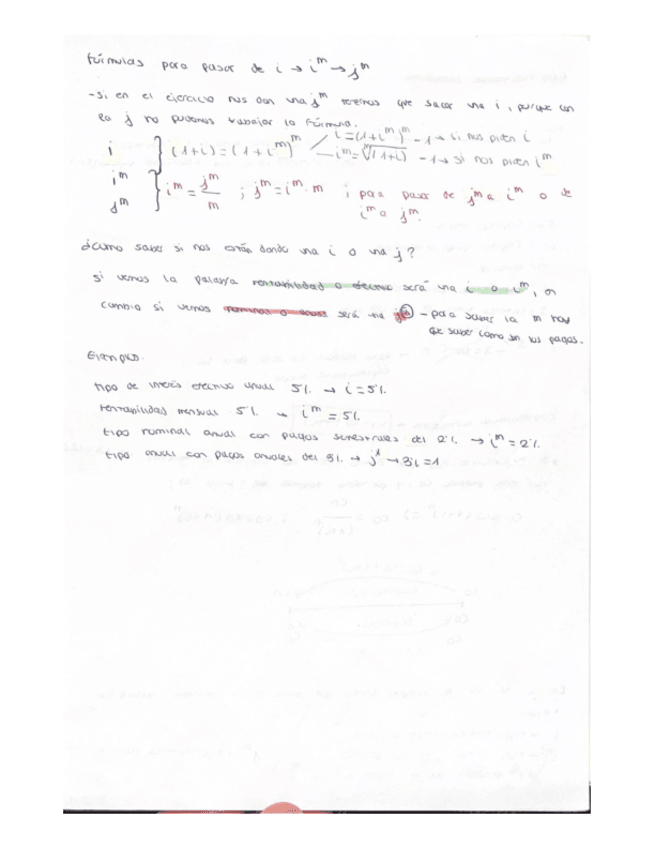 Fórmulas para pasar de i → i^m → j^m
- Si en el ejercicio nos dan una j^m tenemos que sacar una i, porque con
la j no podemos trabajar la fórmula.
i } (1+i) = (1+i^m)^m / i = (1+i^m)^m - 1 → si nos piden i
i^m = ᵐ√(1+i) - 1 → si nos piden i^m
i^m
j^m } i^m = j^m / m ; j^m = i^m · m ; para pasar de j^m a i^m o de
i^m a j^m.
¿Cómo saber si nos están dando una i o una j?
Si vemos la palabra rentabilidad o efectivo será una i o i^m, en
cambio si vemos nominal o será una j^m - para saber la m hay
que saber como son los pagos.
Ejemplo.
tipo de interés efectivo anual 5%. → i = 5%.
rentabilidad mensual 5%. → i^m = 5%.
tipo nominal anual con pagos semestrales del 2%. → i^m = 2%.
tipo anual con pagos anuales del 3%. → j^1 → 3% = 1